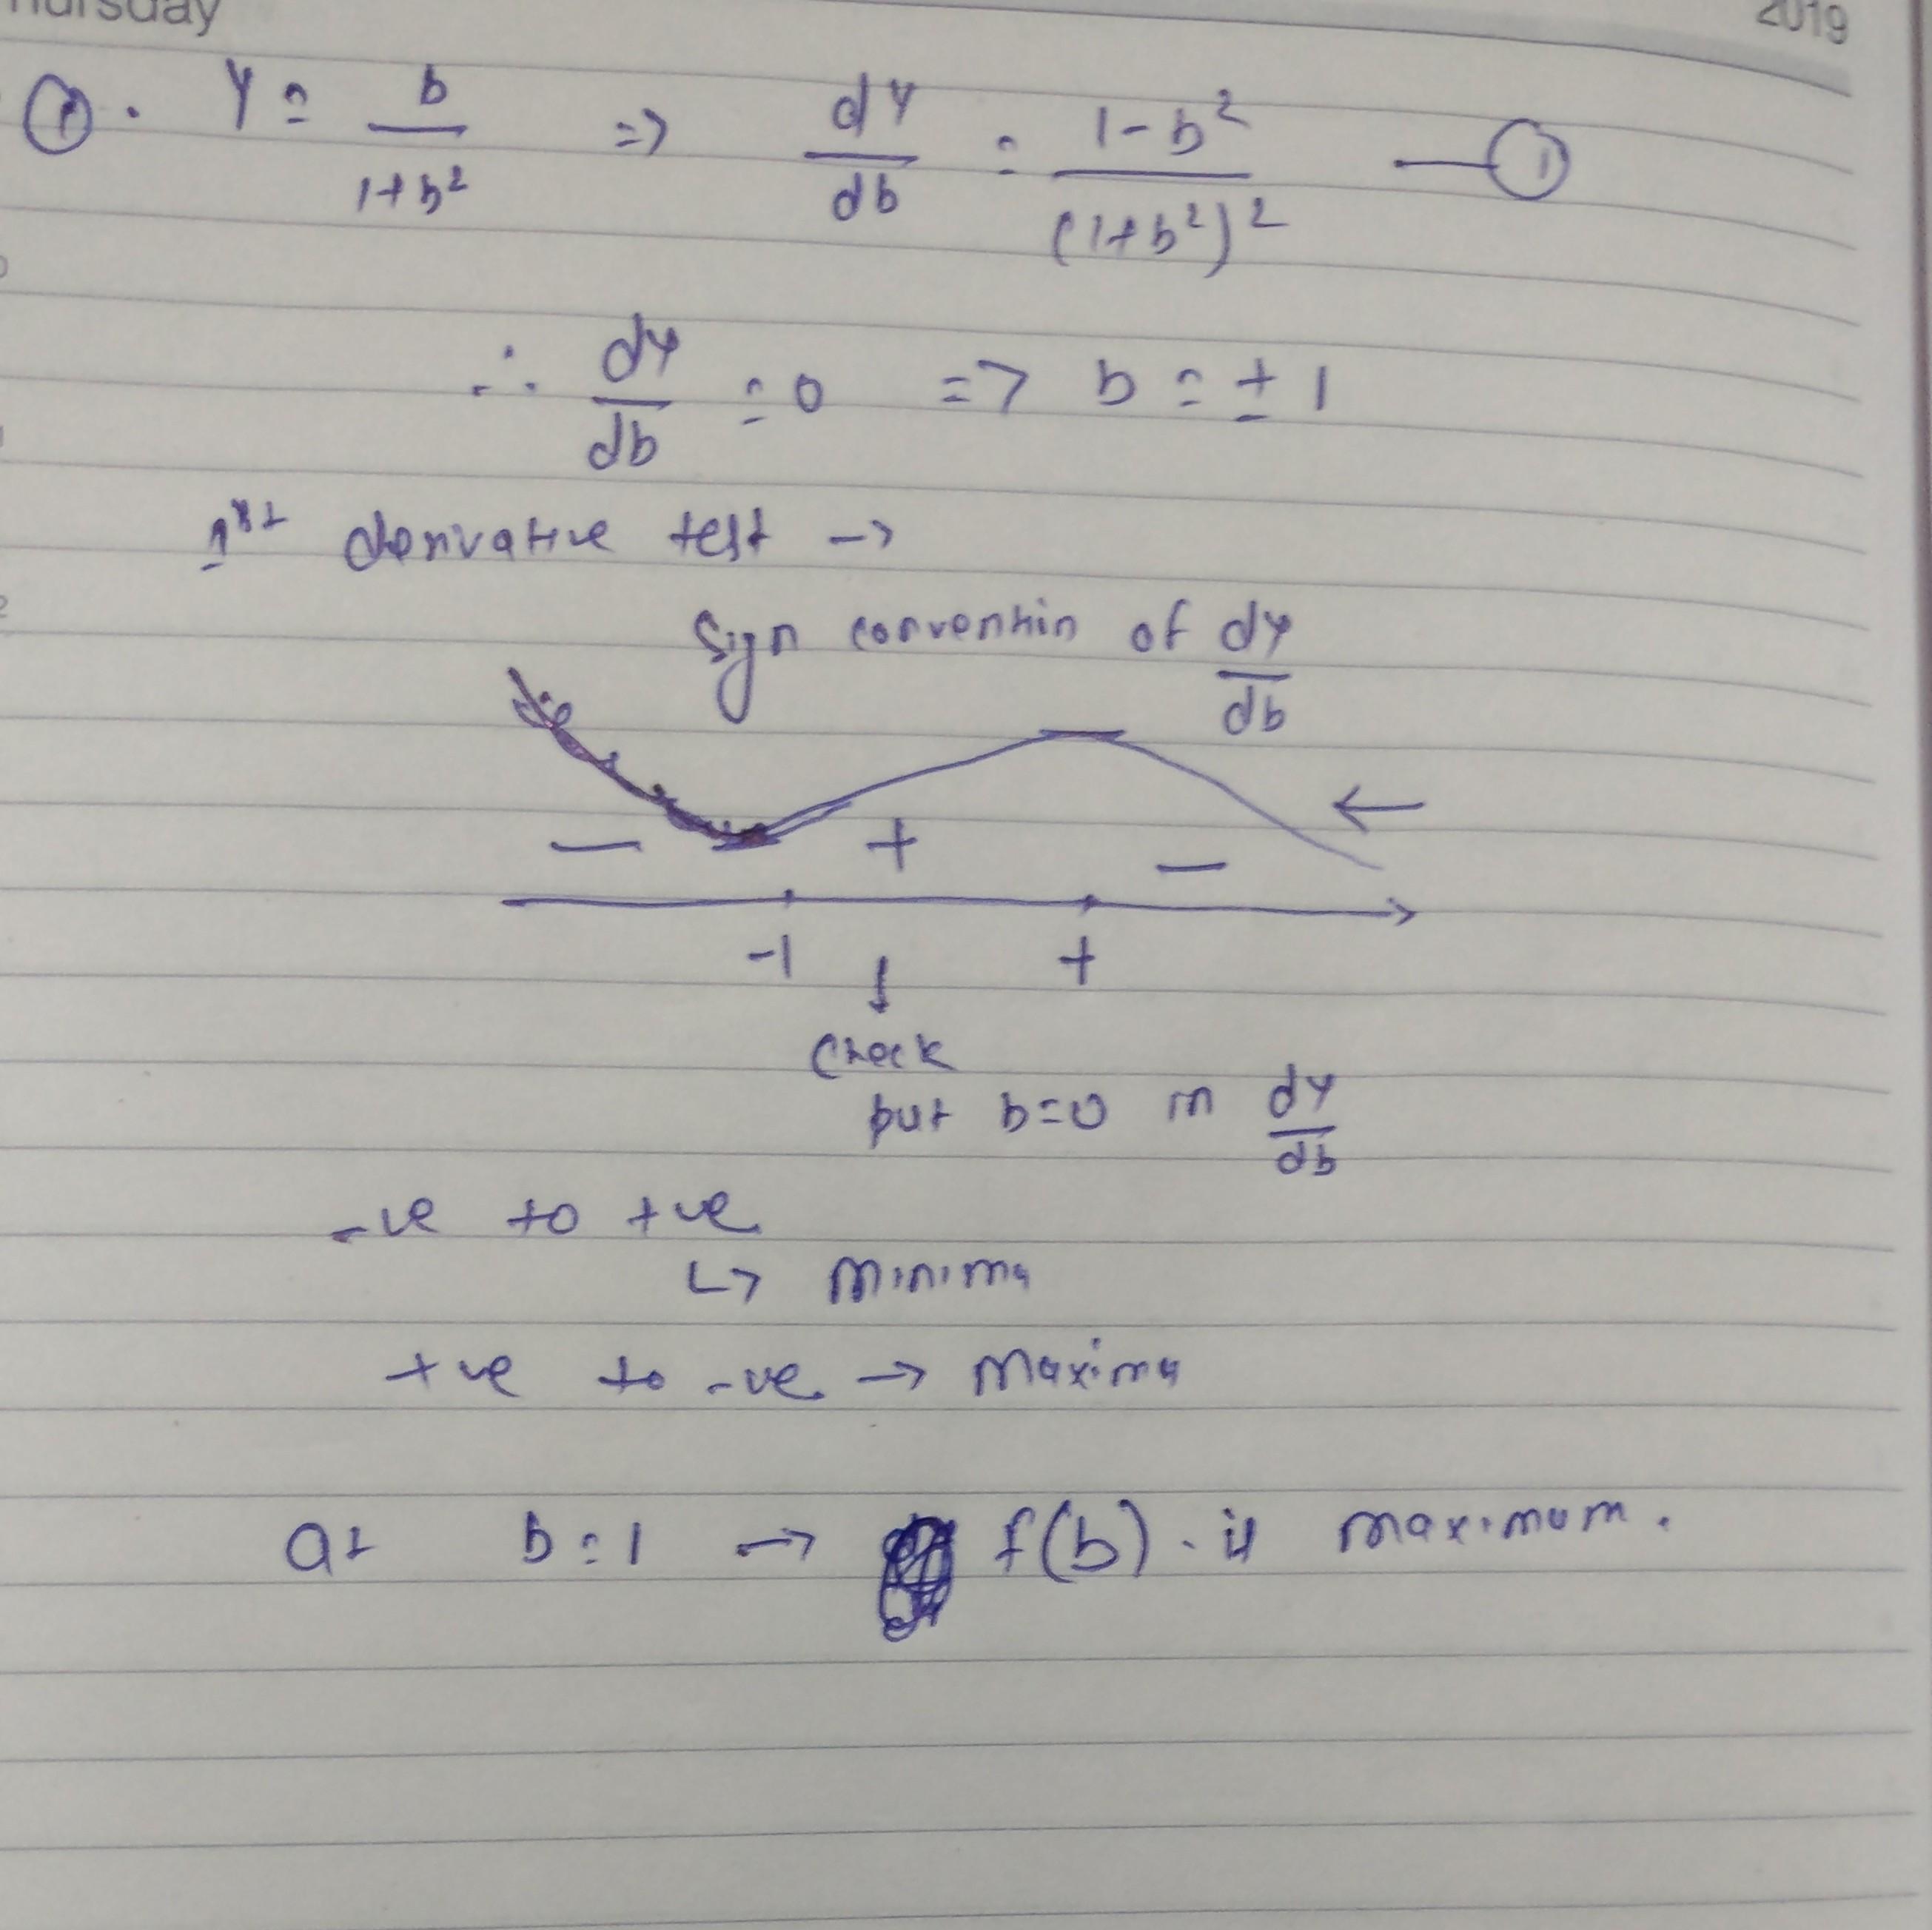 2019
①. Y = b/(1+b²) => dY/db = (1-b²)/(1+b²)² —①
∴ dy/db = 0 => b = ± 1
1st derivative test ->
Sign convention of dy/db
- + -
-1 +
↓
Check
put b=0 in dY/db
-ve to +ve
↳ Minima
+ve to -ve -> Maxima
at b=1 -> f(b). is maximum.